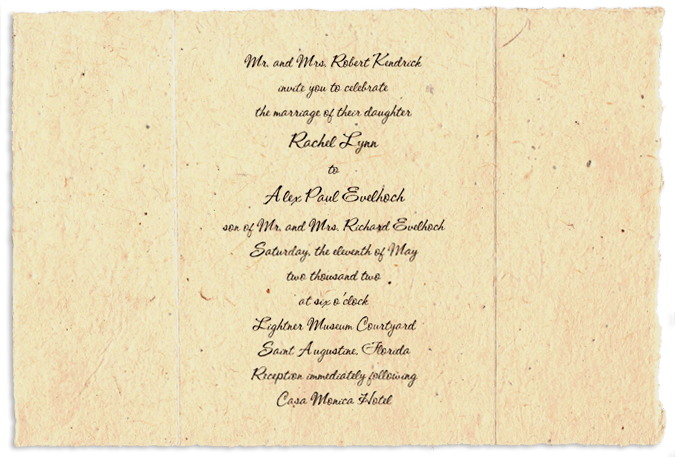 Mr. and Mrs. Robert Kendrick
invite you to celebrate
the marriage of their daughter
Rachel Lynn
to
Alex Paul Evelhoch
son of Mr. and Mrs. Richard Evelhoch
Saturday, the eleventh of May
two thousand two
at six o'clock
Lightner Museum Courtyard
Saint Augustine, Florida
Reception immediately following
Casa Monica Hotel